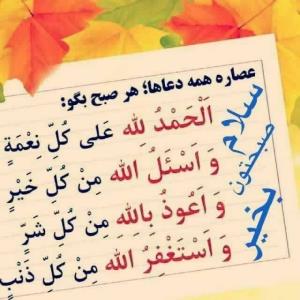 عصاره همه دعاها؛ هر صبح بگو:
اَلْحَمْدُ لِلهِ عَلی کُلِّ نِعْمَةٍ
وَ اَسْئَلُ الله مِنْ کُلِّ خَیْرٍ
وَ اَعُوذُ بِاللهِ مِنْ کُلِّ شَرٍّ
وَ اَسْتَغْفِرُ الله مِنْ کُلِّ ذَنْبٍ
سلام
صبحتون
بخیر